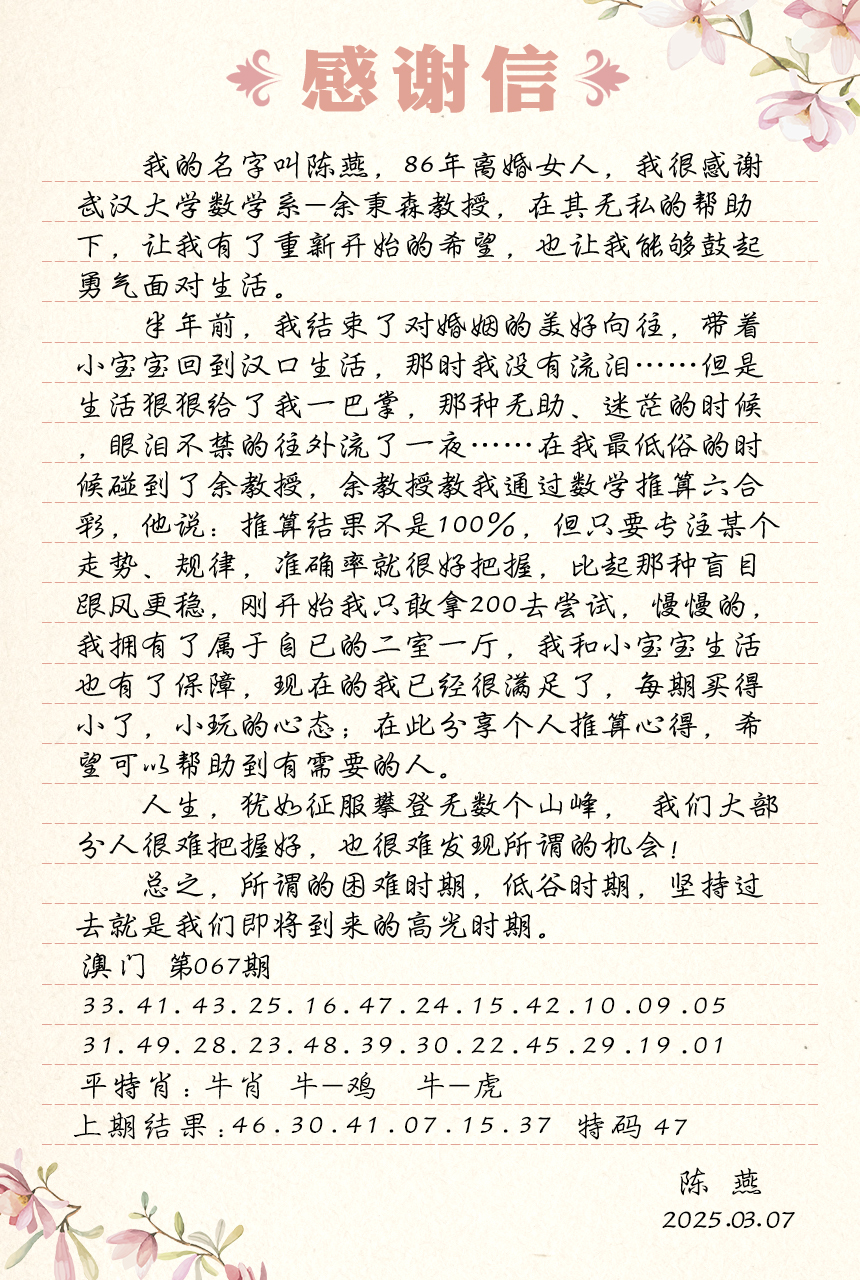 感谢信
我的名字叫陈燕，86年离婚女人，我很感谢
武汉大学数学系—余秉森教授，在其无私的帮助
下，让我有了重新开始的希望，也让我能够鼓起
勇气面对生活。
半年前，我结束了对婚姻的美好向往，带着
小宝宝回到汉口生活，那时我没有流泪……但是
生活狠狠给了我一巴掌，那种无助、迷茫的时候
，眼泪不禁的往外流了一夜……在我最低俗的时
候碰到了余教授，余教授教我通过数学推算六合
彩，他说：推算结果不是100%，但只要专注某个
走势、规律，准确率就很好把握，比起那种盲目
跟风更稳，刚开始我只敢拿200去尝试，慢慢的，
我拥有了属于自己的二室一厅，我和小宝宝生活
也有了保障，现在的我已经很满足了，每期买得
小了，小玩的心态；在此分享个人推算心得，希
望可以帮助到有需要的人。
人生，犹如征服攀登无数个山峰， 我们大部
分人很难把握好，也很难发现所谓的机会！
总之，所谓的困难时期，低谷时期，坚持过
去就是我们即将到来的高光时期。
澳门 第067期
33.41.43.25.16.47.24.15.42.10.09.05
31.49.28.23.48.39.30.22.45.29.19.01
平特肖：牛肖 牛—鸡 牛—虎
上期结果：46.30.41.07.15.37 特码 47
陈 燕
2025.03.07